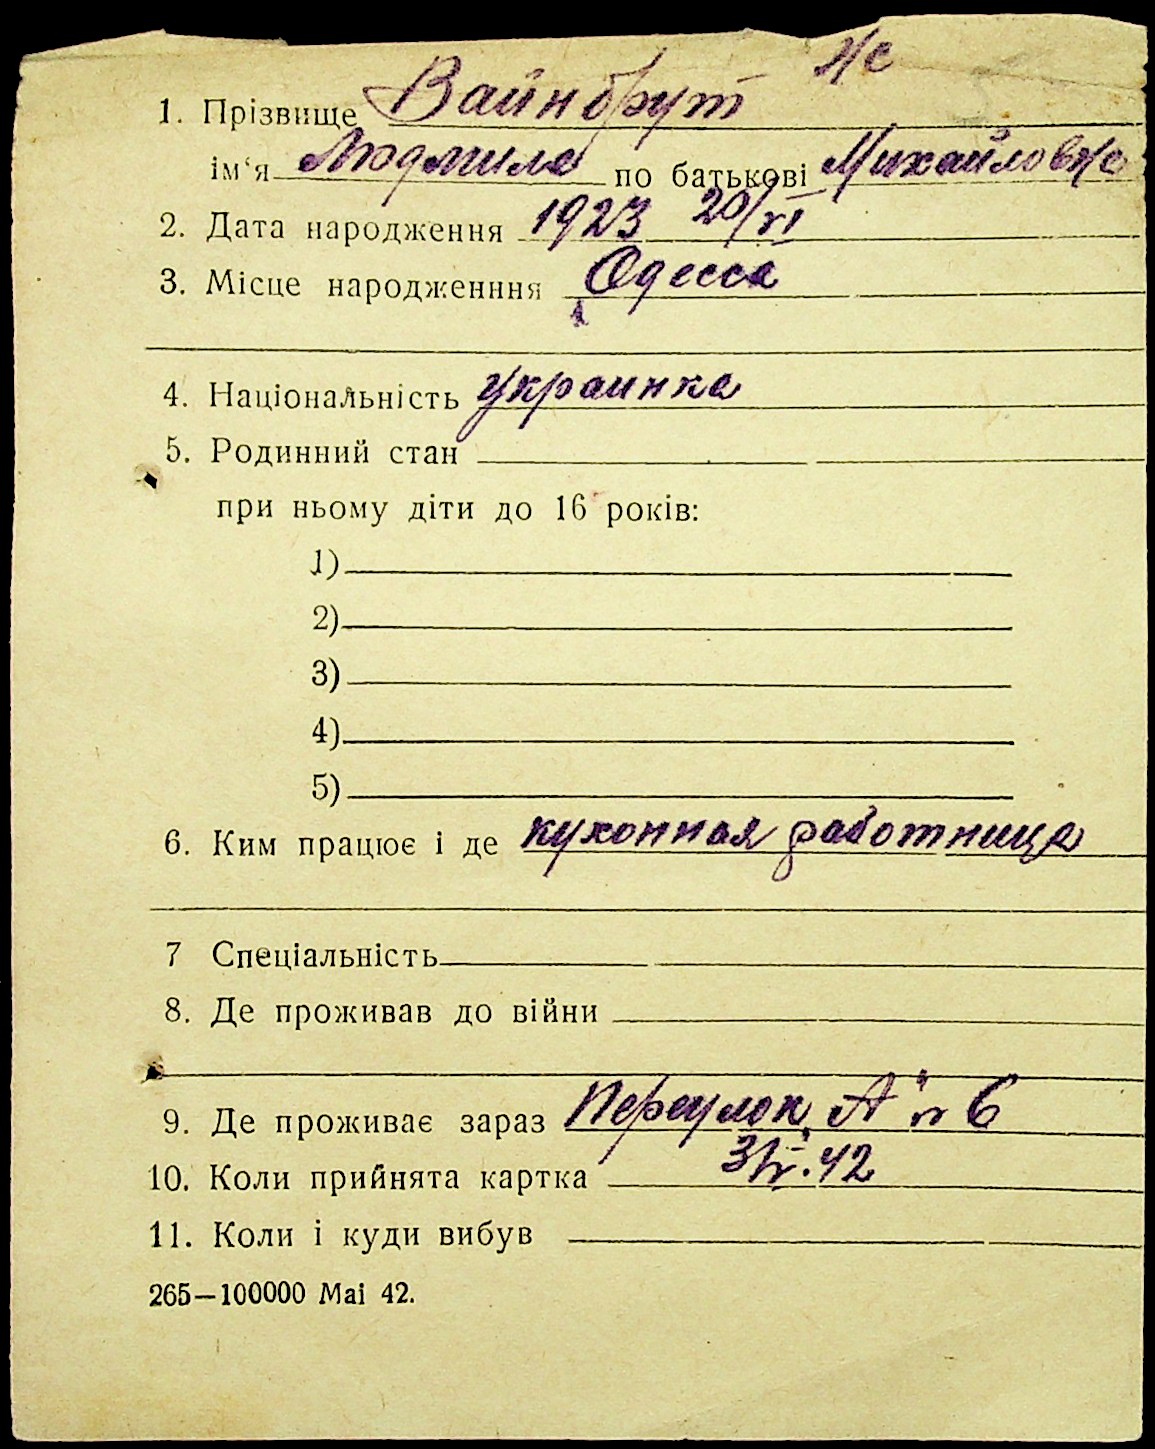 1. Прізвище Вайнбрут
ім‘я Людмила по батькові Михайловна
2. Дата народження 1923 20/VI
3. Місце народженння Одесса
4. Національність украинка
5. Родинний стан
при ньому діти до 16 років:
1)
2)
3)
4)
5)
6. Ким працює і де кухонная работница
7 Спеціальність
8. Де проживав до війни
9. Де проживає зараз Переулок "А" 6
10. Коли прийнята картка 42
11. Коли і куди вибув
265—100000 Mai 42.